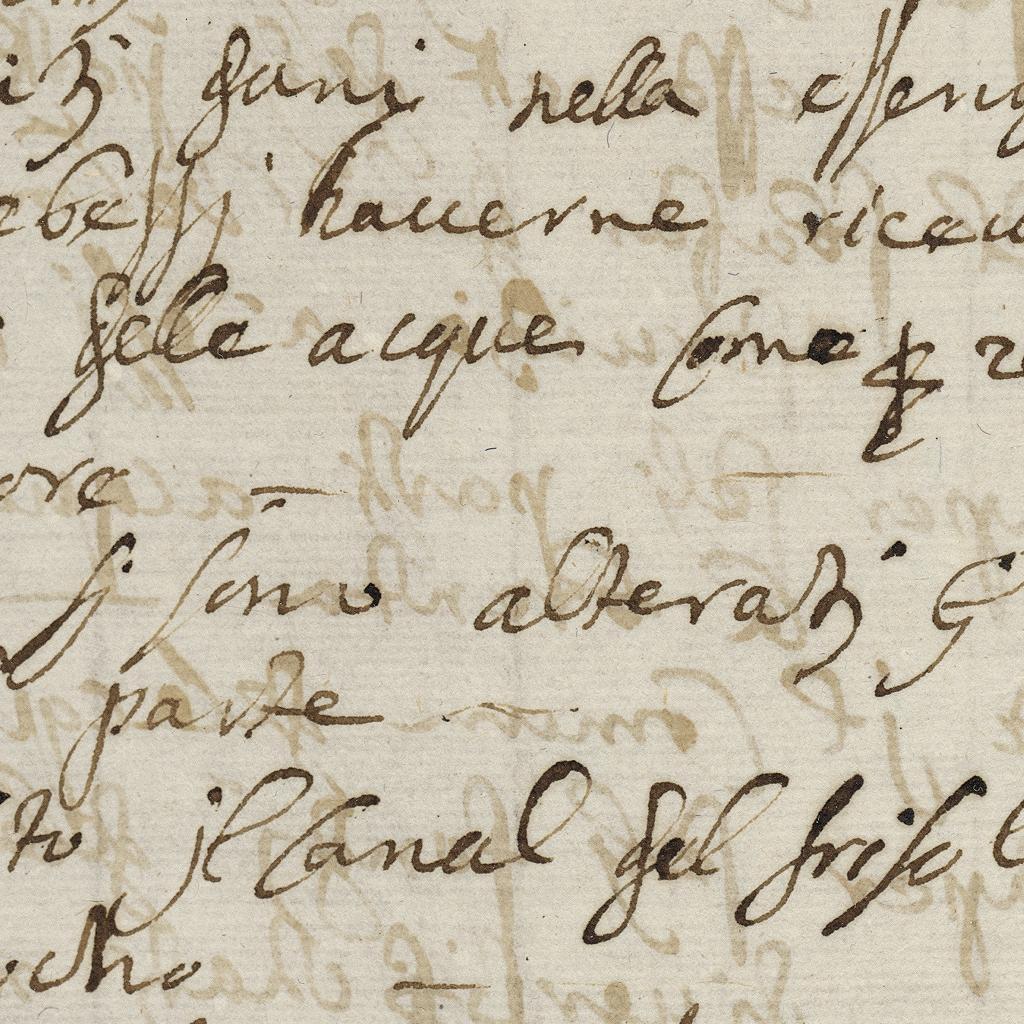 dani nella essen
ebessj hauerne riceu
delle acque come
ore
si sono alteratj
parte
to jl Canal del friso l
ocho